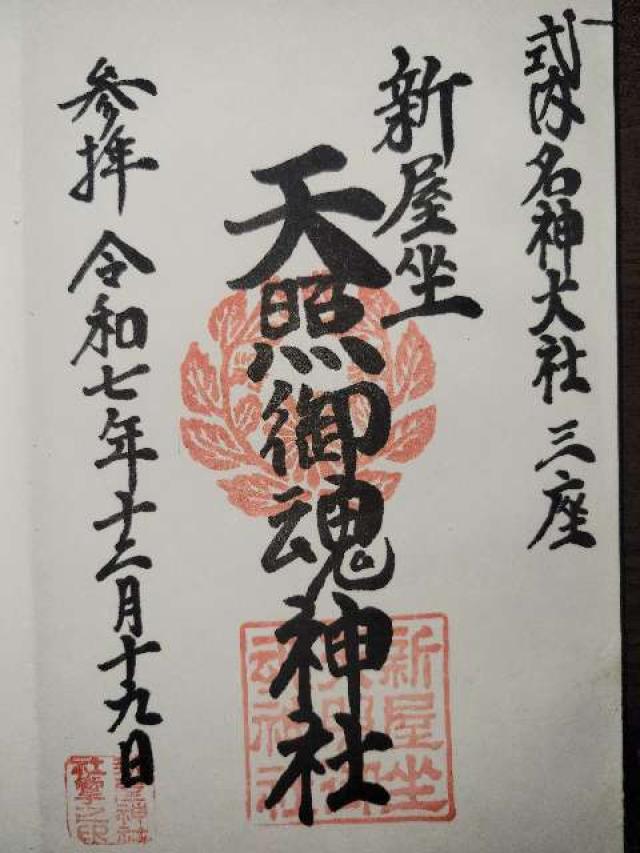 式内名神大社 三座
新屋坐
天照御魂神社
参拝 令和七年十二月十九日
新屋坐
天照御
魂神社